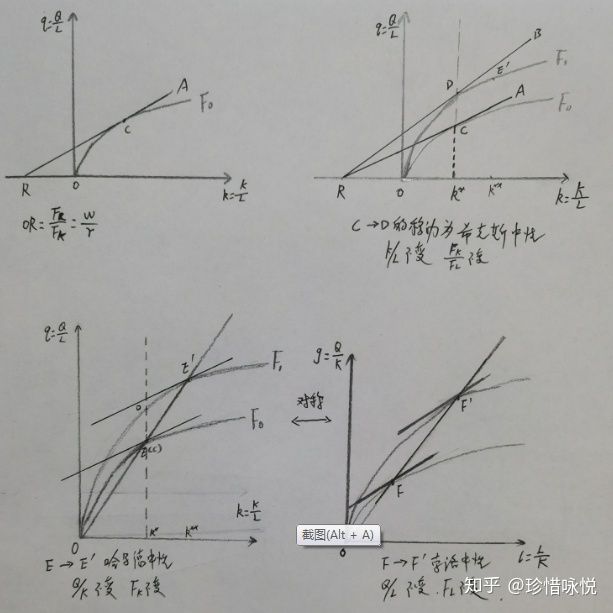 q=Q/L
A
F₀
C
R
O
k=K/L
OR=F_L/F_K=w/r
q=Q/L
B
F₁
E'
D
A
F₀
C
R
O
k*
k**
k=K/L
C→D的移动为希克斯中性
K/L不变 F_K/F_L不变
q=Q/L
E'
F₁
D
F₀
E(C)
k=K/L
O
k*
k**
E→E'哈罗德中性
Q/K不变 F_K不变
对称
g=Q/K
F'
F
截图(Alt + A)
O
l=L/K
F→F'索洛中性
Q/L不变.F_L不变
知乎 @珍惜咏悦